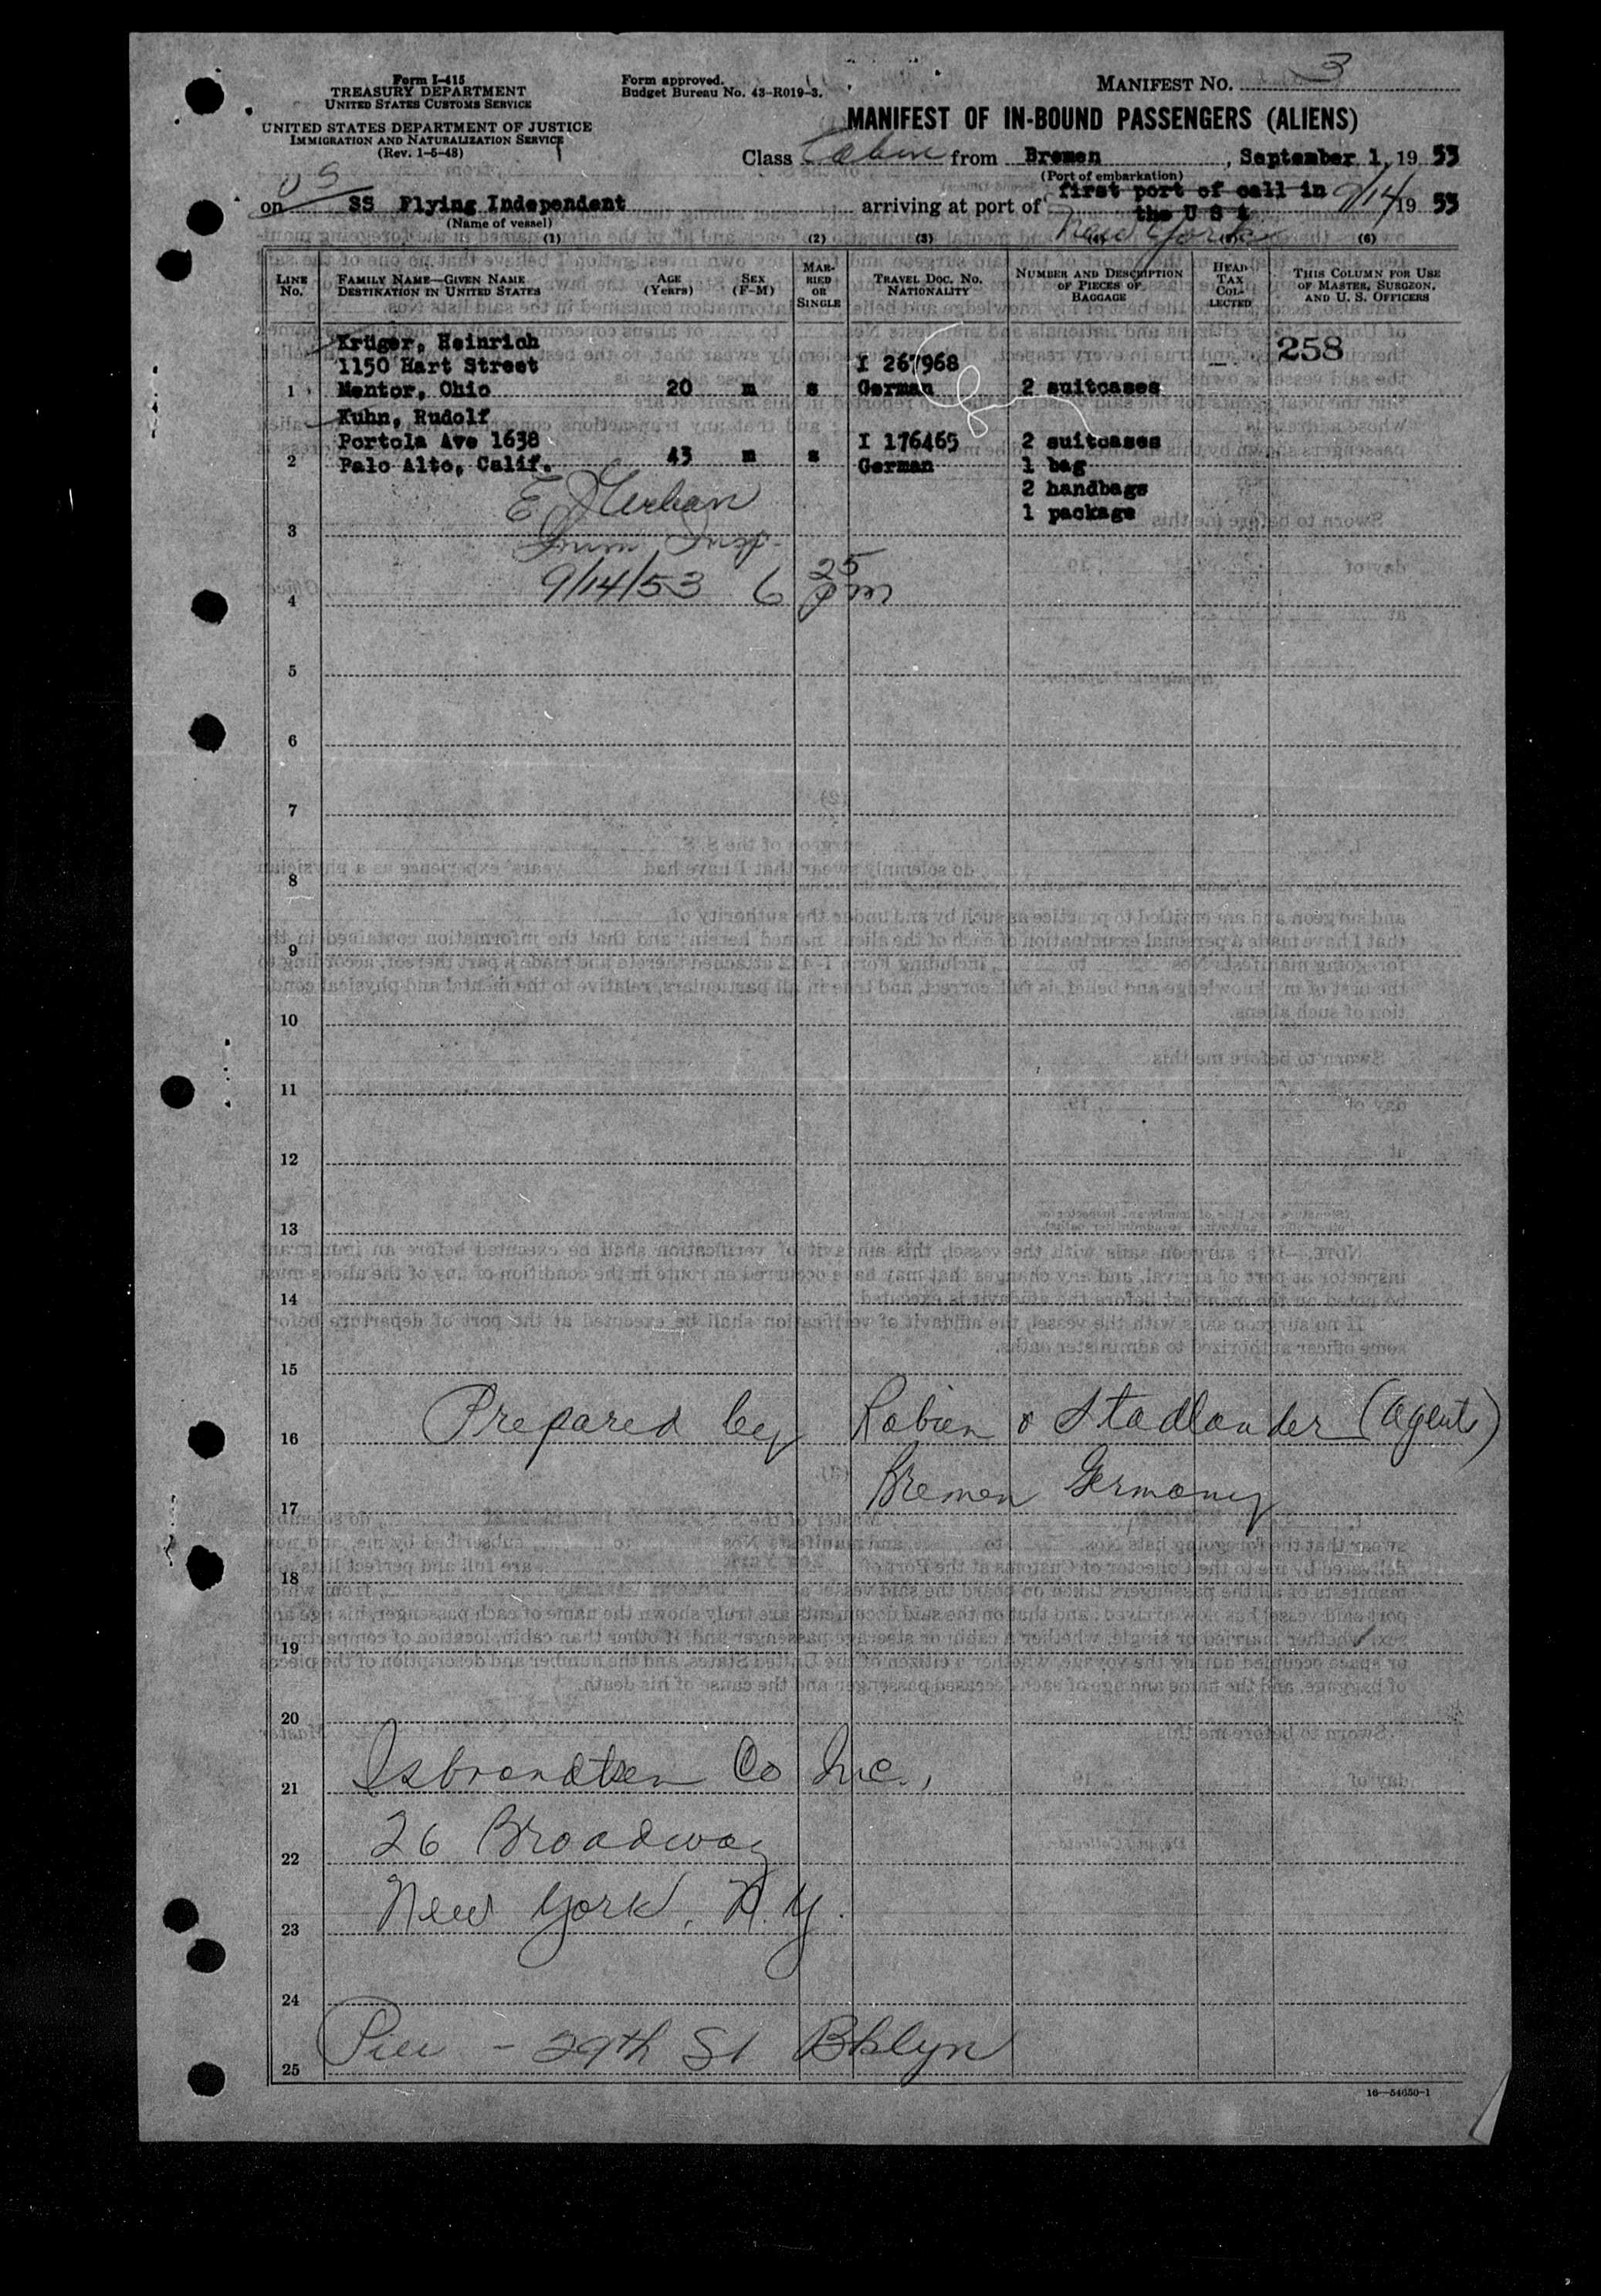 Form I-415
TREASURY DEPARTMENT
UNITED STATES CUSTOMS SERVICE
UNITED STATES DEPARTMENT OF JUSTICE
IMMIGRATION AND NATURALIZATION SERVICE
(Rev. 1-5-48)
Form approved.
Budget Bureau No. 43-R019-3.
MANIFEST NO. 3
MANIFEST OF IN-BOUND PASSENGERS (ALIENS)
Class Cabin from Bremen, September 1, 19 53
(Port of embarkation)
US
on SS Flying Independent arriving at port of first port of call in the U S A 9/14 19 53
(Name of vessel)
New York
(1) (2) (3) (4) (5) (6)
LINE No.
FAMILY NAME—GIVEN NAME
DESTINATION IN UNITED STATES
AGE (Years)
SEX (F-M)
MARRIED OR SINGLE
TRAVEL DOC. NO.
NATIONALITY
NUMBER AND DESCRIPTION OF PIECES OF BAGGAGE
HEAD TAX COLLECTED
THIS COLUMN FOR USE OF MASTER, SURGEON, AND U. S. OFFICERS
Krüger, Heinrich
258
1150 Hart Street I 267968
1 Mentor, Ohio 20 m s German 2 suitcases
Kuhn, Rudolf
Portola Ave 1638 I 176465 2 suitcases
2 Palo Alto, Calif. 43 m s German 1 bag
2 handbags
1 package
3
Imm. Insp.
4 9/14/53 6 25 pm
5
6
7
8
9
10
11
12
13
14
15
16 Prepared by Robien & Stadlander (agents)
17 Bremen Germany
18
19
20
21 Isbrandtsen Co Inc.,
22 26 Broadway
23 New York, N.Y.
24
25 Pier - 29th St Bklyn
16—54650-1